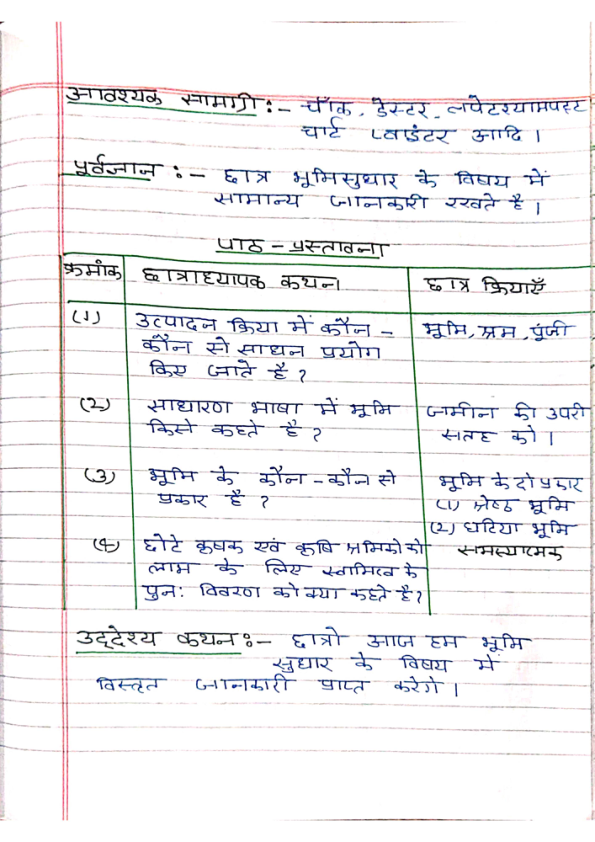 आवश्यक सामाग्री :- चॉक, डेस्टर, लपेटश्यामपस्ट
चार्ट प्वाइंटर आदि ।
पूर्वज्ञान :- छात्र भूमिसुधार के विषय में
सामान्य जानकारी रखते है ।
पाठ - प्रस्तावना
क्रमांक छात्राध्यापक कथन छात्र क्रियाएँ
(1) उत्पादन क्रिया में कौन - भूमि, श्रम, पूंजी
कौन से साधन प्रयोग
किए जाते है ?
(2) साधारण भाषा में भूमि जमीन की उपरी
किसे कहते है ? सतह को ।
(3) भूमि के कौन - कौन से भूमि के दो प्रकार
प्रकार है ? (1) श्रेष्ठ भूमि
(2) घटिया भूमि
(4) छोटे कृषक एवं कृषि श्रमिको को समस्यात्मक
लाभ के लिए स्वामित्व के
पुनः विवरण को क्या कहते है ?
उद्देश्य कथन :- छात्रो आज हम भूमि
सुधार के विषय में
विस्तृत जानकारी प्राप्त करेगे ।